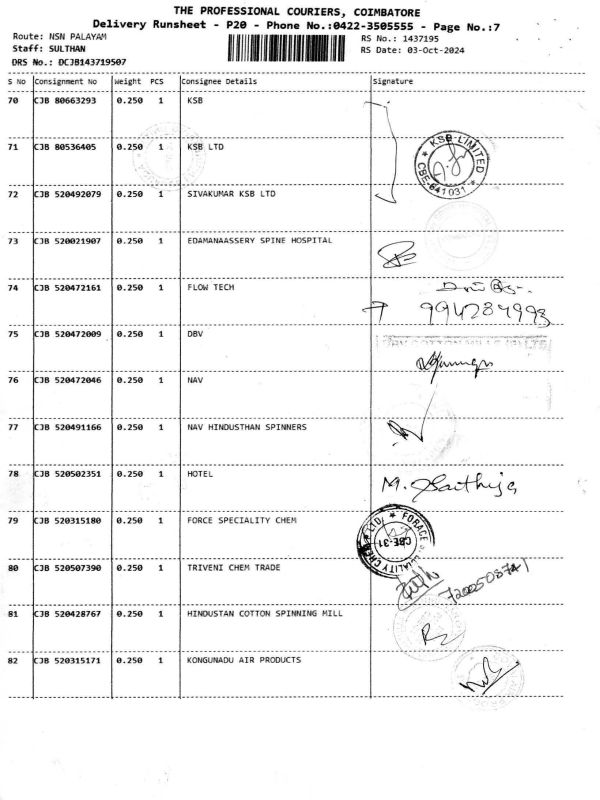 THE PROFESSIONAL COURIERS, COIMBATORE
Delivery Runsheet - P20 - Phone No.:0422-3505555 - Page No.:7
Route: NSN PALAYAM
Staff: SULTHAN
DRS No.: DCJB143719507
RS No.: 1437195
RS Date: 03-Oct-2024
S No Consignment No Weight PCS Consignee Details Signature
70 CJB 80663293 0.250 1 KSB
71 CJB 80536405 0.250 1 KSB LTD
KSB LIMITED
CBE-641031
72 CJB 520492079 0.250 1 SIVAKUMAR KSB LTD
73 CJB 520021907 0.250 1 EDAMANAASSERY SPINE HOSPITAL
74 CJB 520472161 0.250 1 FLOW TECH
75 CJB 520472009 0.250 1 DBV
76 CJB 520472046 0.250 1 NAV
77 CJB 520491166 0.250 1 NAV HINDUSTHAN SPINNERS
78 CJB 520502351 0.250 1 HOTEL
79 CJB 520315180 0.250 1 FORCE SPECIALITY CHEM
CBE-31
80 CJB 520507390 0.250 1 TRIVENI CHEM TRADE
81 CJB 520428767 0.250 1 HINDUSTAN COTTON SPINNING MILL
82 CJB 520315171 0.250 1 KONGUNADU AIR PRODUCTS